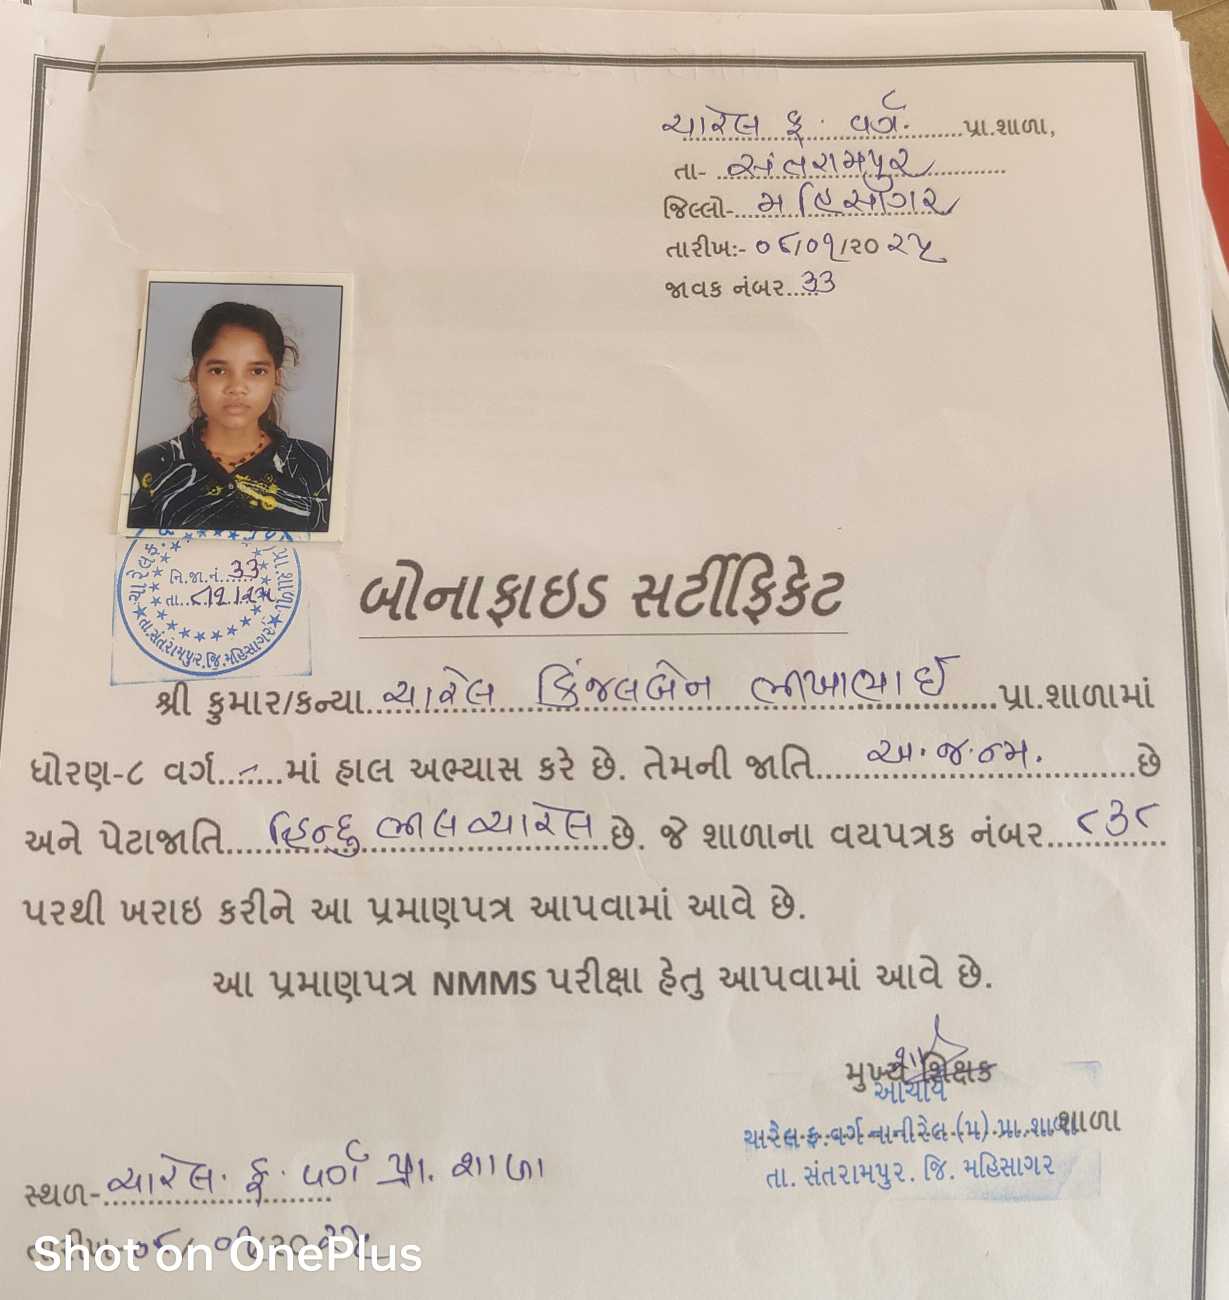 ચારેલ ફ. વર્ગ. પ્રા.શાળા,
તા- સંતરામપુર
જિલ્લો- મહિસાગર
તારીખ:- ૦૬/૦૧/૨૦૨૫
જાવક નંબર..33
ચારેલ ફ. પ્રા.શાળા
નિ.જા.નં. 33
તા.
તા.સંતરામપુર.જિ.મહિસાગર
બોનાફાઇડ સર્ટીફિકેટ
શ્રી કુમાર/કન્યા ચારેલ કિંજલબેન ભીખાભાઈ પ્રા.શાળામાં
ધોરણ-૮ વર્ગ......માં હાલ અભ્યાસ કરે છે. તેમની જાતિ અ.જ.જા. છે
અને પેટાજાતિ હિન્દુ ભીલ ચારેલ છે. જે શાળાના વયપત્રક નંબર ૮૩૮
પરથી ખરાઇ કરીને આ પ્રમાણપત્ર આપવામાં આવે છે.
આ પ્રમાણપત્ર NMMS પરીક્ષા હેતુ આપવામાં આવે છે.
મુખ્ય શિક્ષક
આચાર્ય
ચારેલ.ફ.વર્ગ નાનીરેલ.(પ) પ્રા.શાળા શાળા
તા. સંતરામપુર. જિ. મહિસાગર
સ્થળ- ચારેલ. ફ. વર્ગ પ્રા. શાળા
Shot on OnePlus